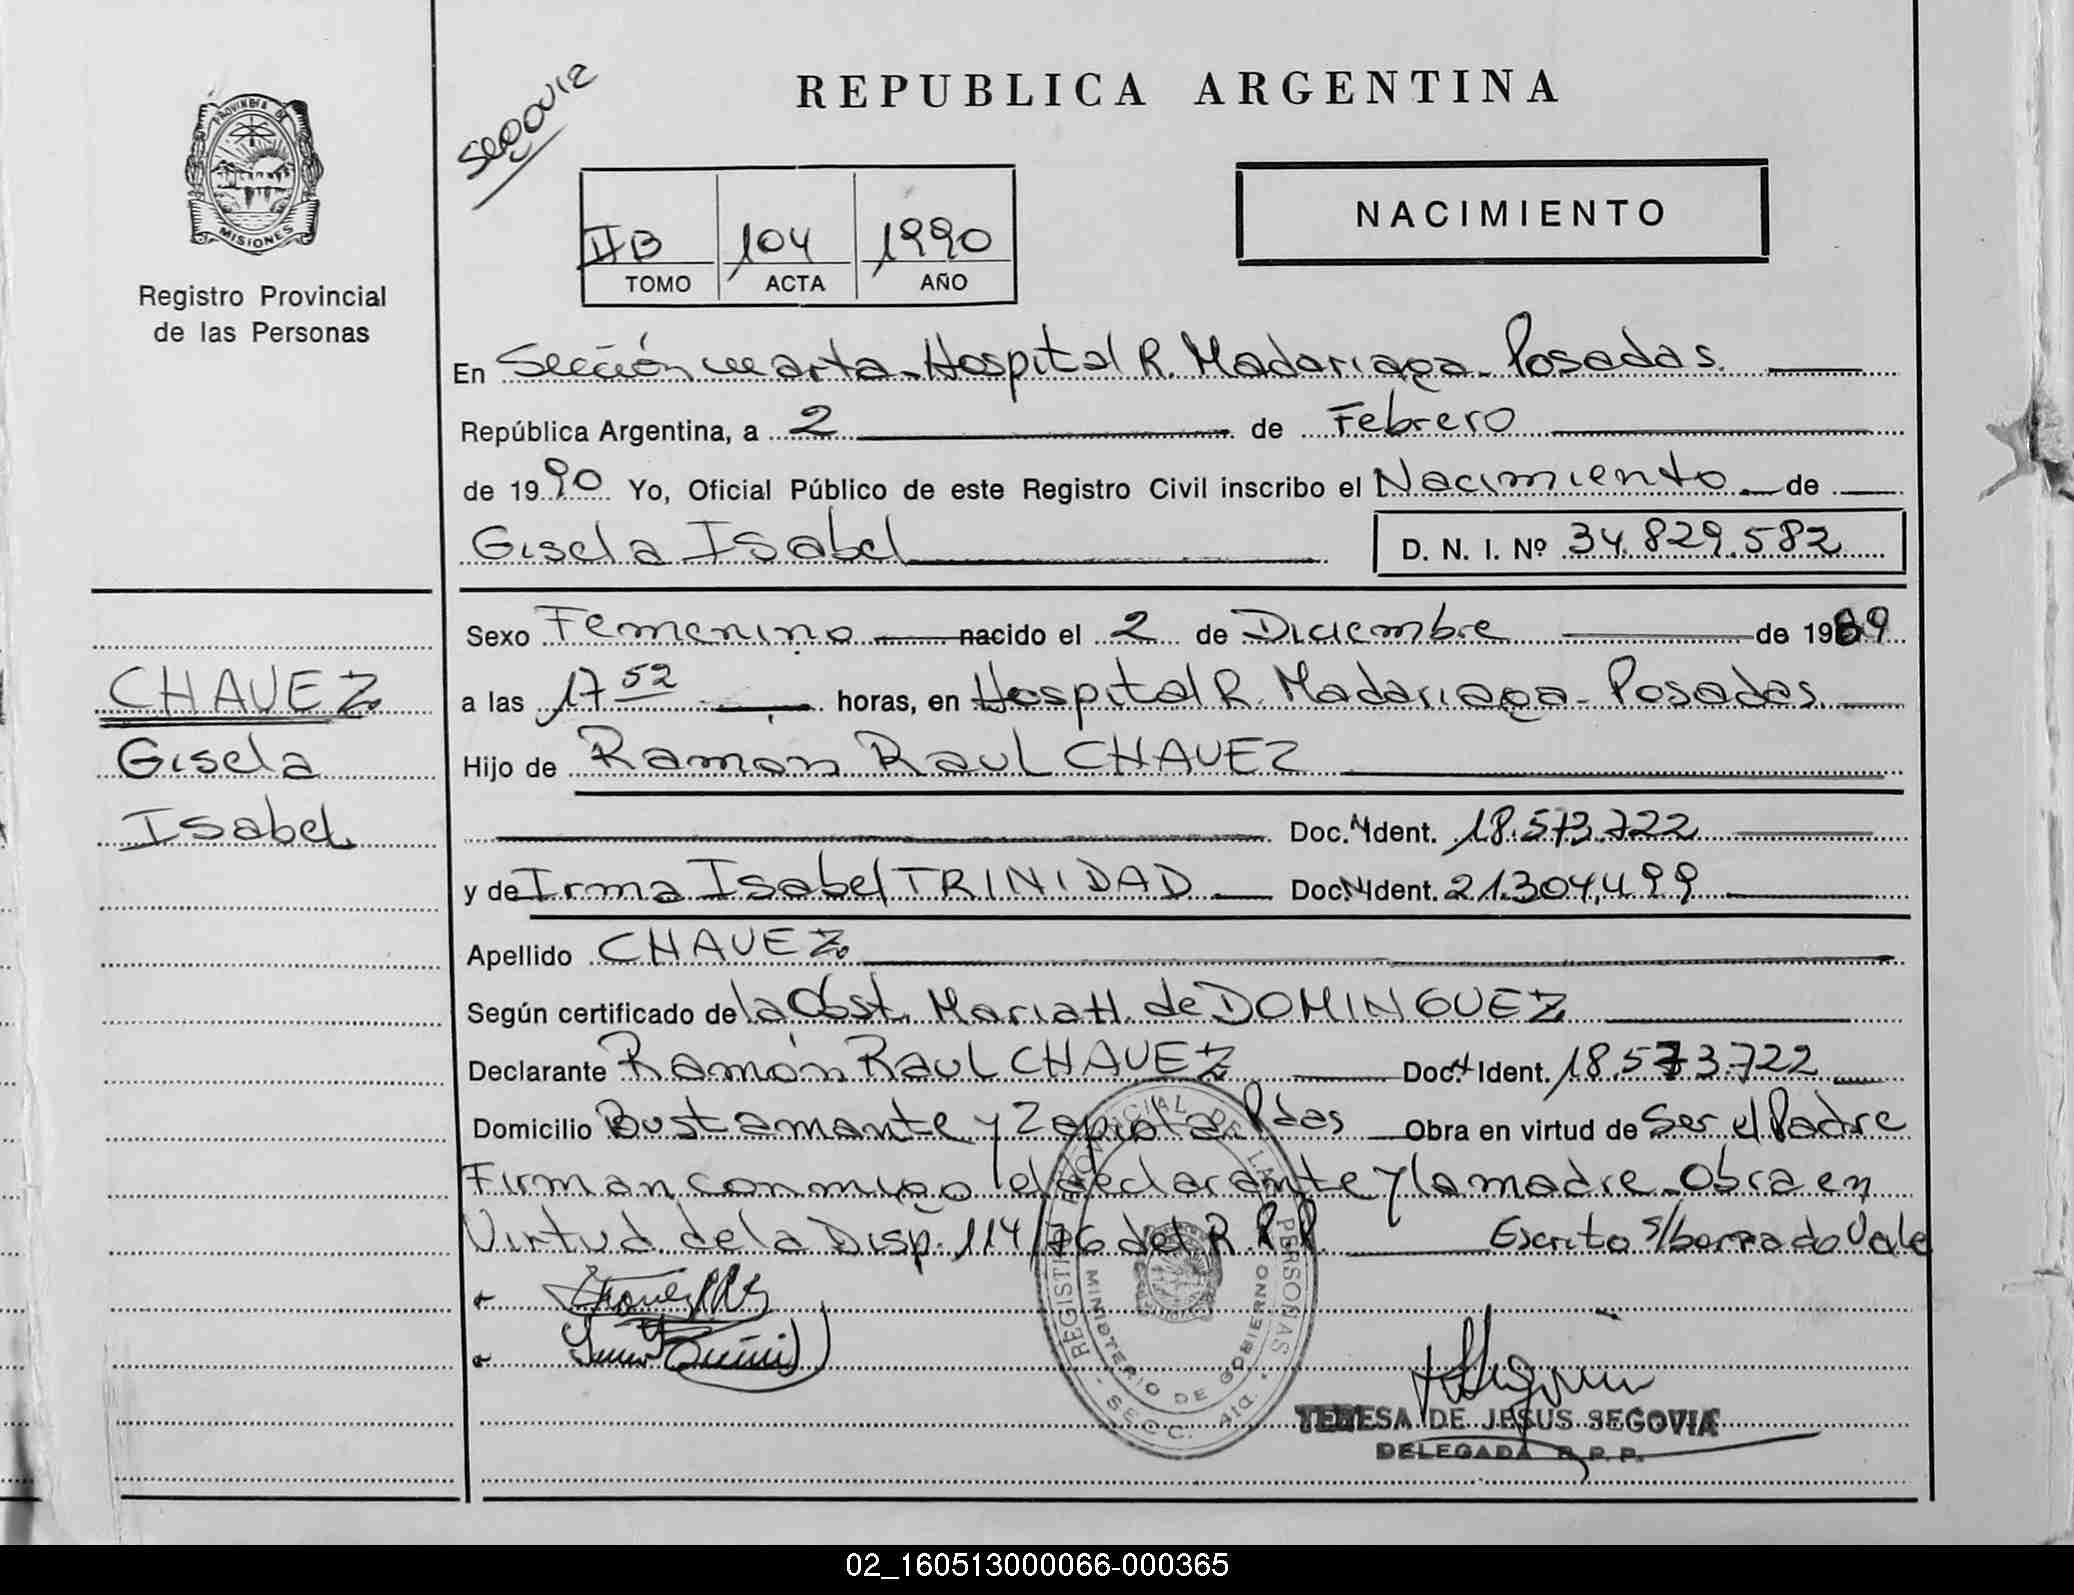 Segovia
REPUBLICA ARGENTINA
PROVINCIA DE MISIONES
Registro Provincial
de las Personas
IIB 104 1990
TOMO ACTA AÑO
NACIMIENTO
En Sección cuarta - Hospital R. Madariaga - Posadas.
República Argentina, a 2 de Febrero
de 1990 Yo, Oficial Público de este Registro Civil inscribo el Nacimiento de
Gisela Isabel D. N. I. Nº 34.829.582
Sexo Femenino nacido el 2 de Diciembre de 1989
a las 17 52 horas, en Hospital R. Madariaga - Posadas.
Hijo de Ramón Raul CHAVEZ
Doc. N Ident. 18.573.722
y de Irma Isabel TRINIDAD Doc. N Ident. 21.304.499
Apellido CHAVEZ
Según certificado de la Obst. Maria H. de DOMINGUEZ
Declarante Ramón Raul CHAVEZ Doc. Ident. 18.573.722
Domicilio Bustamante y Zapiola Pdas Obra en virtud de Ser el Padre
Firman conmigo el declarante y la madre. Obra en
Virtud de la Disp. 114/76 del R.P.P. Escrito s/borrado Vale
CHAVEZ
Gisela
Isabel
REGISTRO PROVINCIAL DE LAS PERSONAS
MINISTERIO DE GOBIERNO
SECC. 4ta.
TERESA DE JESUS SEGOVIA
DELEGADA R.P.P.
02_160513000066-000365